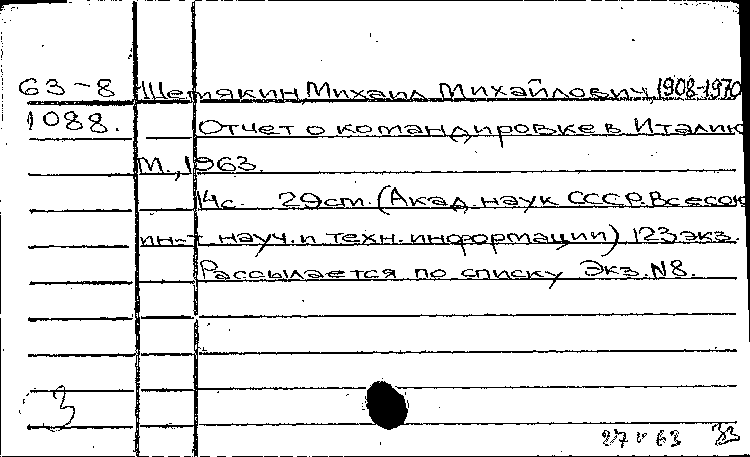 63-8 Шетякин, Михаил Михайлович, 1908-1970
1088. Отчет о командировке в Италию
М., 1963.
14с. 29cm. (Акад. наук СССР. Всесоюз
ин-т науч. и техн. информации) 123 экз.
Рассылается по списку Экз. N8.
3
27 V 63 33